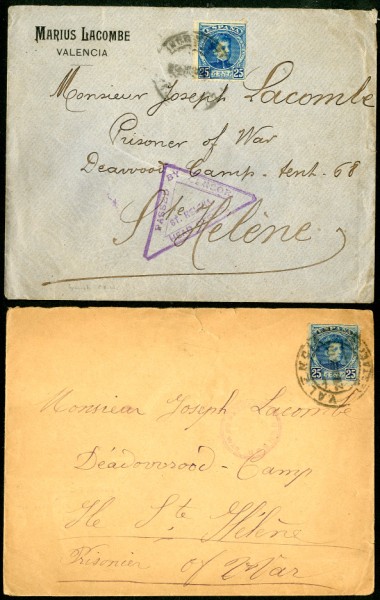 MARIUS LACOMBE
VALENCIA
ESPAÑA
25 CENT. 25
Monsieur Joseph Lacombe
Prisoner of War
Deawood Camp - tent - 68
PASSED BY CENSOR
Ste Helène
ESPAÑA
25 CENT. 25
VALENCIA
Monsieur Joseph Lacombe
Déadovvood - Camp
Ile Ste Hélène
Prisonier of War